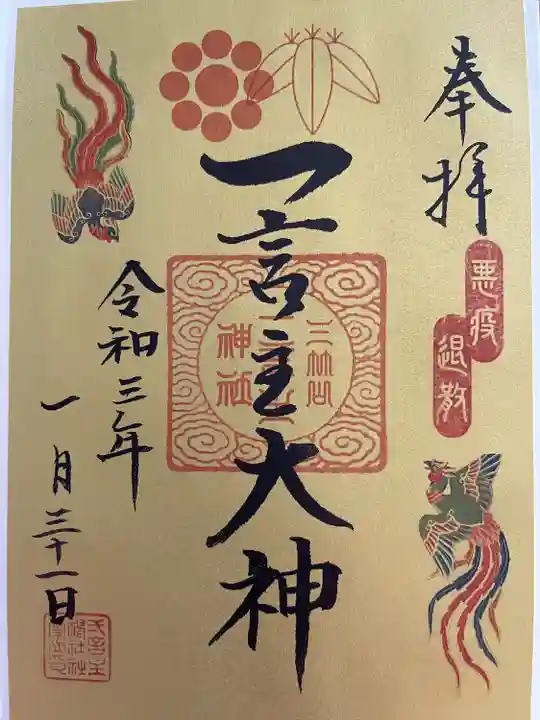 奉拝
悪疫
退散
一言主大神
神社
令和三年
一月三十一日